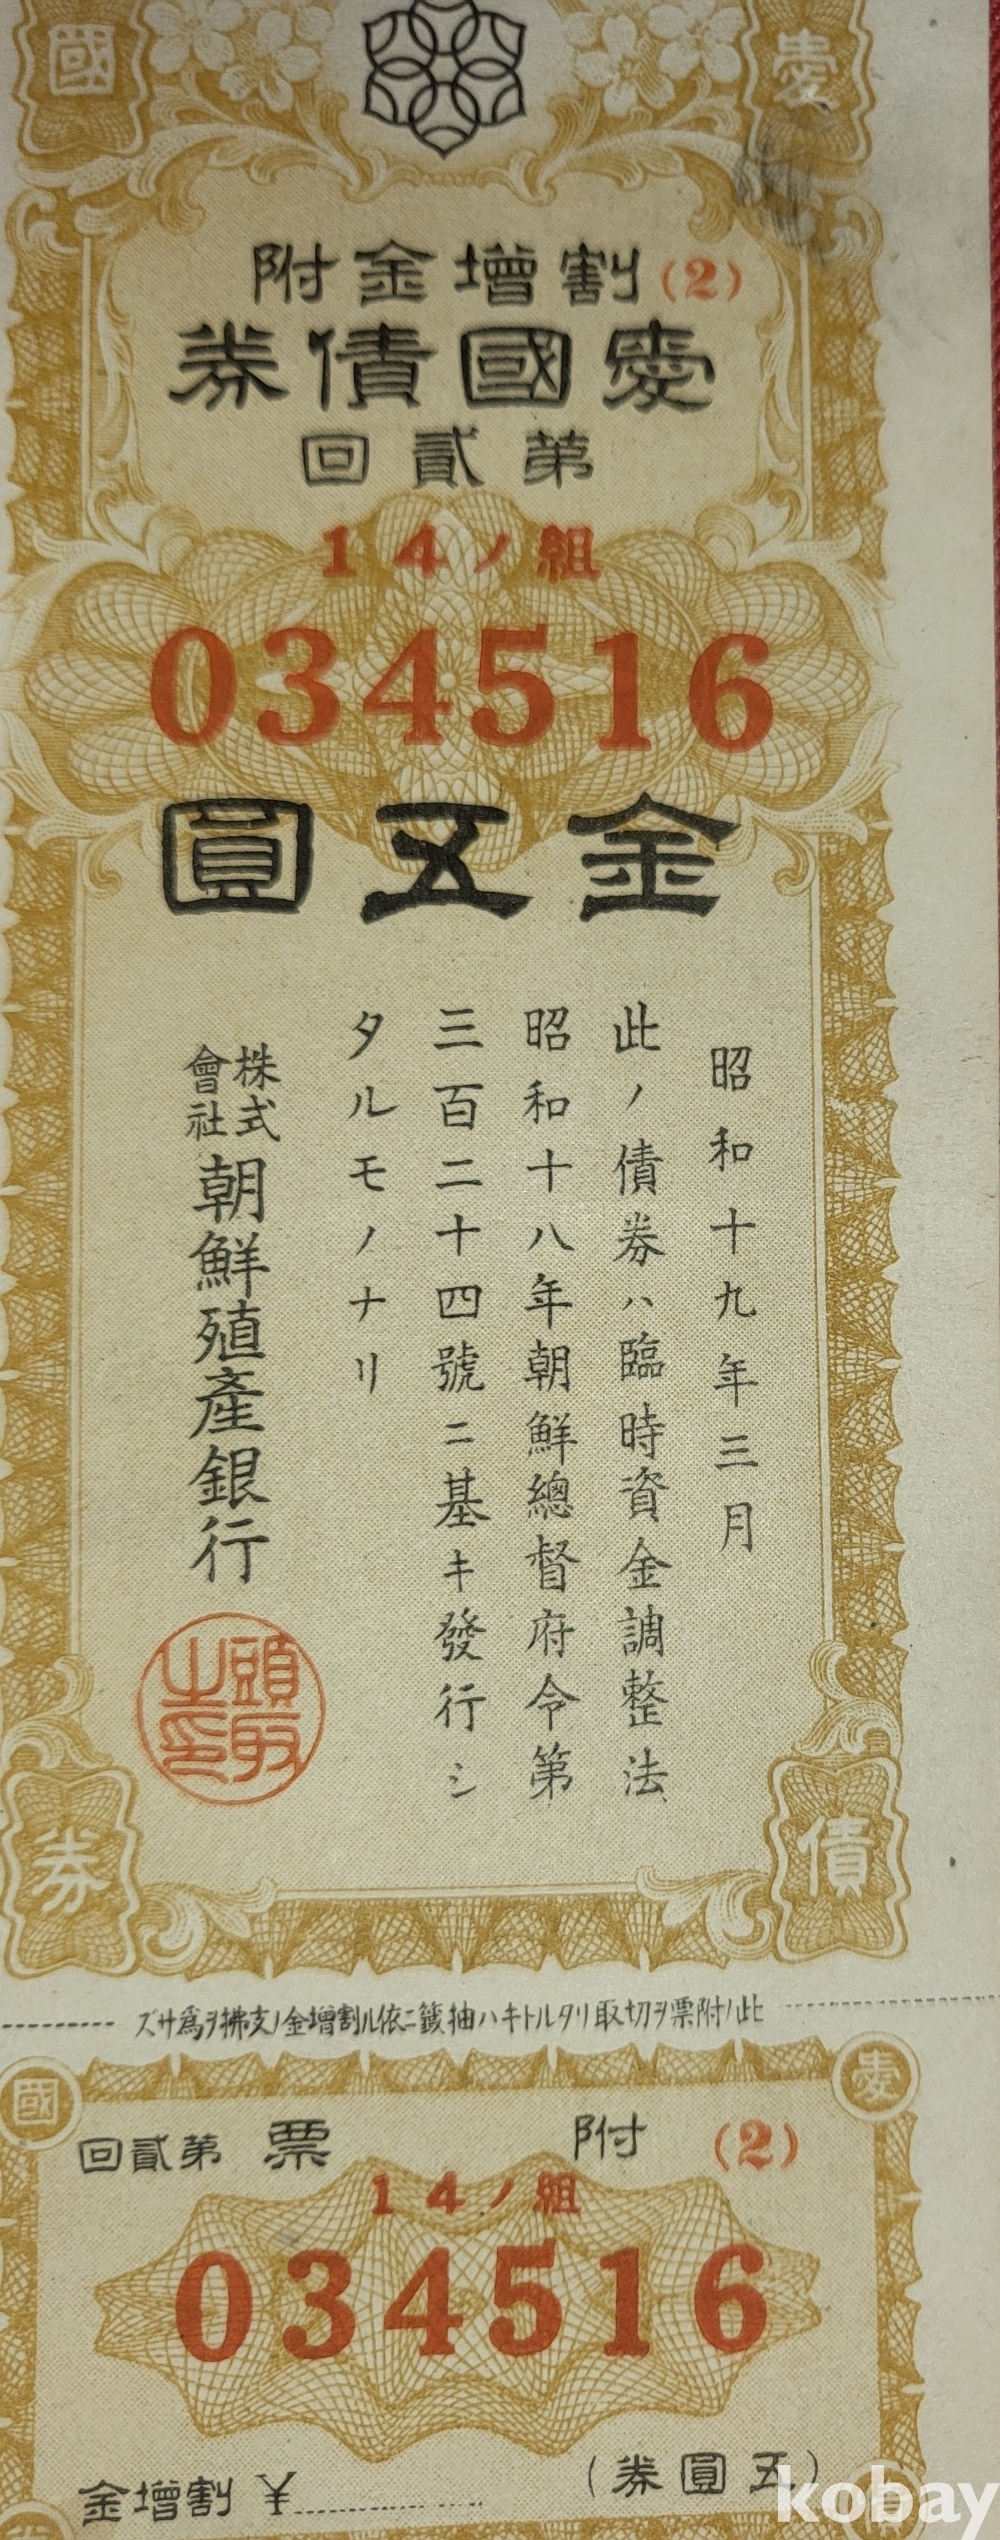 愛國
割增金附 (2)
愛國債券
第貳回
14ノ組
034516
金五圓
昭和十九年三月
此ノ債券ハ臨時資金調整法
昭和十八年朝鮮總督府令第
三百二十四號ニ基キ發行シ
タルモノナリ
株式會社 朝鮮殖產銀行
頭取之印
債券
此ノ附票ヲ切取リタルトキハ抽籤ニ依ル割增金ノ支拂ヲ爲サズ
愛國
附票 第貳回 (2)
14ノ組
034516
(五圓券)
割增金 ¥
kobay